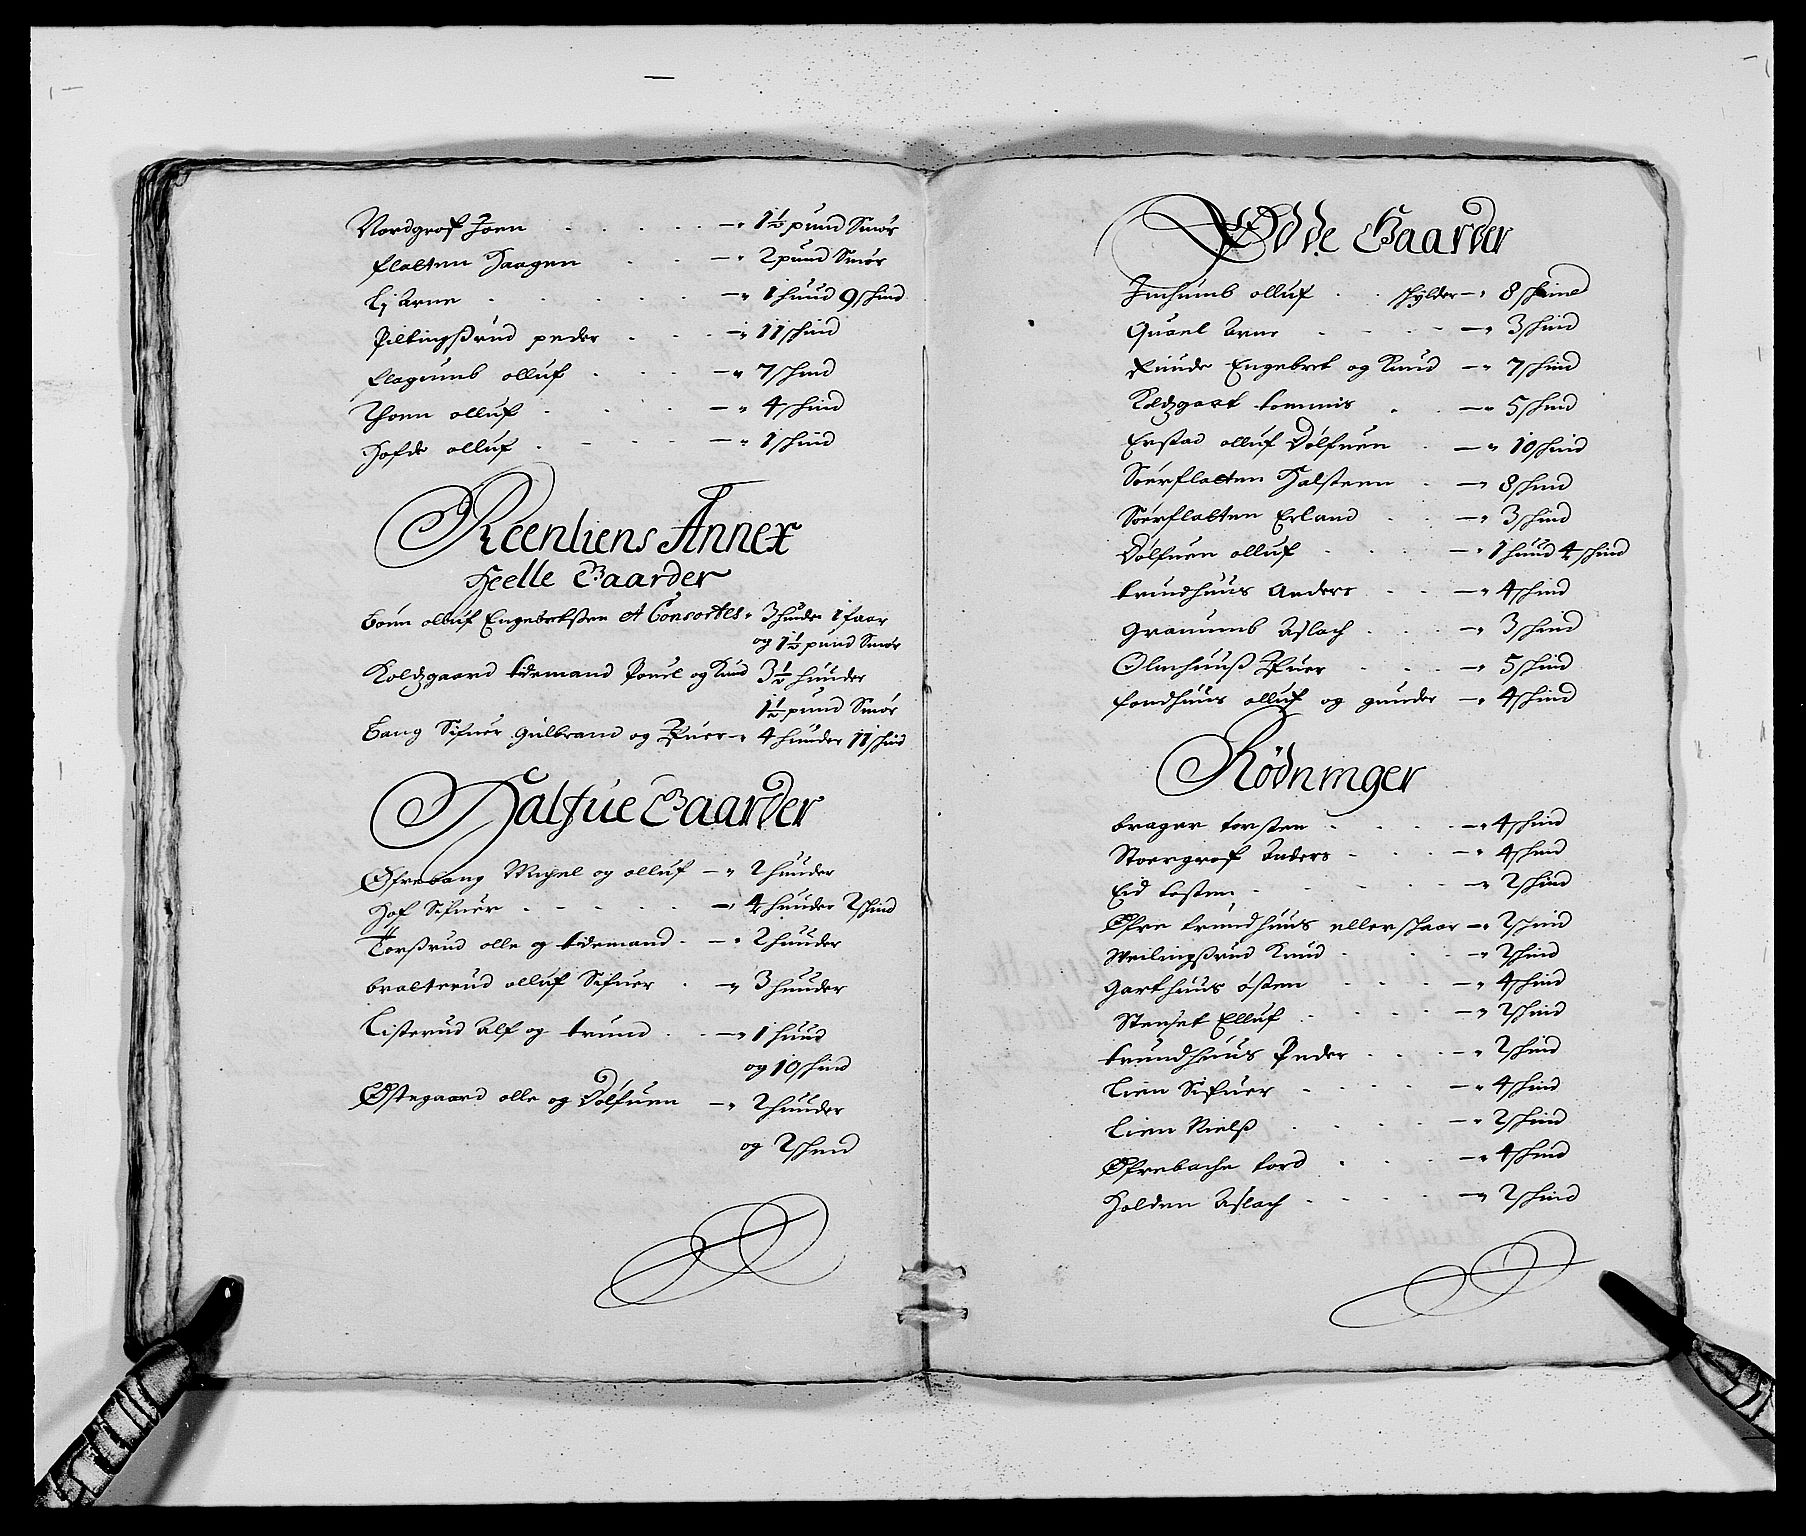 Nordgrof Joen - " 1½ pund Smør
flatten Haagen - " 2 pund Smør
Lj Arne - " 1 huud 9 skind
Piltingßrud peder - " 11 skind
Flagumb olluf - " 7 skind
Thoen olluf - " 4 skind
Hofde olluf - " 1 skind
Reenliens Annex
Heelle Gaarder
olluf Engebretßen et Consortes " 3 huder 1 faar
og 1½ pund Smør
Koldzgaard tidemand Pouel og Knud 3½ huuder
1½ pund Smør
Bang Sifuer Gulbrand og Ifuer - " 4 huuder 11 skind
Halfue Gaarder
Øfrebang Michel og olluf - " 2 huuder
Hof Sifuer - " 4 huuder 2 skind
Torßrud olle og tidemand - " 2 huuder
bratterud olluf Sifuer - " 3 huuder
Listerud Alf og trund - " 1 huud
og 10 skind
Østegaard olle og Dølfuen - " 2 huuder
og 2 skind
Ødde Gaarder
Juhumb olluf skylder - " 8 skind
Quael Arne - " 3 skind
Ruude Engebret og Knud - " 7 skind
Koldzgart tommis - " 5 skind
Erstad olluf Dølfuen - " 10 skind
Søerflatten Halsteen - " 8 skind
Søerflatten Erland - " 3 skind
Dølfuen olluf - " 1 huud 4 skind
trundhuus Anders - " 4 skind
Granumb Aslach - " 3 skind
Olmhuuß Ifuer - " 5 skind
fondhuus olluf og gunder - " 4 skind
Rødninger
brager torsten - " 4 skind
Stoergrof Anders - " 4 skind
Eid tosten - " 2 skind
Øfre trundhuus eller skaar - " 2 skind
Meilingßrud Knud - " 2 skind
Garthuus østen - " 4 skind
Stenset Elluf - " 2 skind
trundhuus Peder - " 2 skind
Lien Sifuer - " 4 skind
Lien Nielß - " 2 skind
Øfrebache tord - " 4 skind
Holden Aslach - " 2 skind